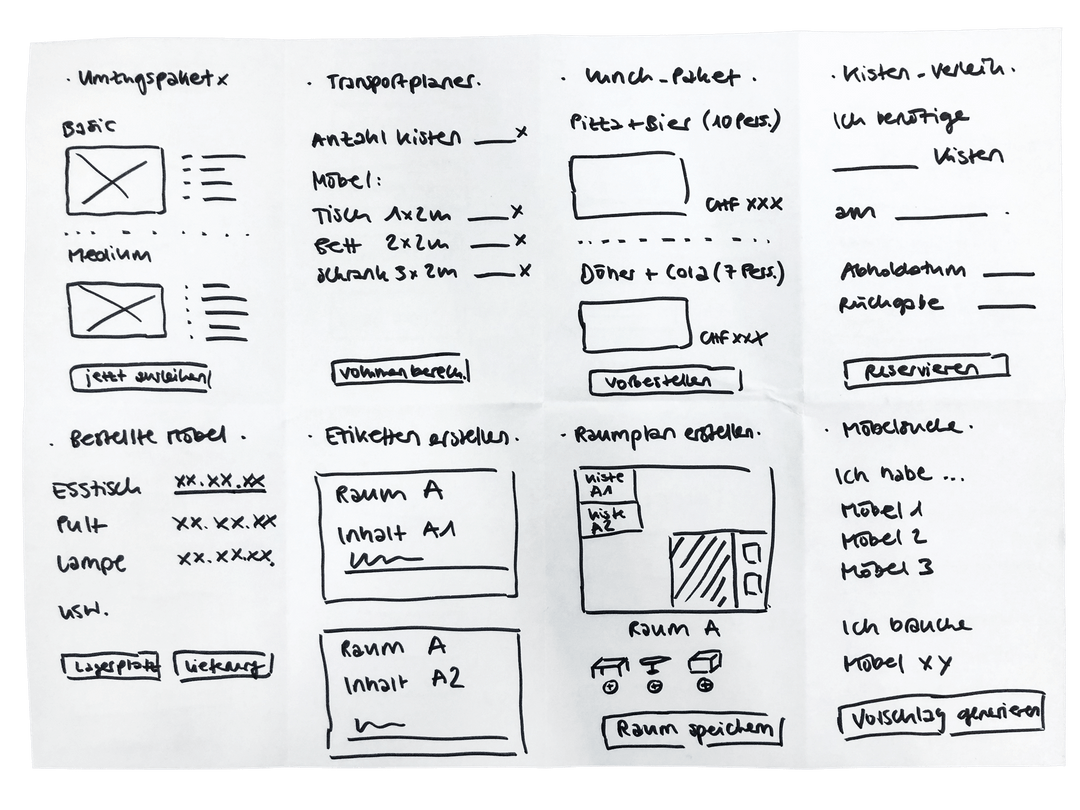 · Umzugspaket x
Basic
Medium
jetzt ausleihen
· Transportplaner.
Anzahl Kisten ___x
Möbel:
Tisch 1x2m ___x
Bett 2x2m ___x
Schrank 3x2m ___x
Volumen berech.
· Lunch-Paket .
Pizza + Bier (10 Pers.)
CHF XXX
Döner + Cola (7 Pers.)
CHF XXX
Vorbestellen
· Kisten-Verleih.
Ich benötige
_____ Kisten
am _____ .
Abholdatum ___
Rückgabe ___
Reservieren
· Bestellte Möbel .
Esstisch xx.xx.xx
Pult xx.xx.xx
Lampe xx.xx.xx.
usw.
Lagerplatz Lieferung
· Etiketten erstellen.
Raum A
Inhalt A1
Raum A
Inhalt A2
· Raumplan erstellen.
Kiste
A1
Kiste
A2
Raum A
Raum speichern
· Möbelsuche.
Ich habe ...
Möbel 1
Möbel 2
Möbel 3
Ich brauche
Möbel xy
Vorschlag generieren